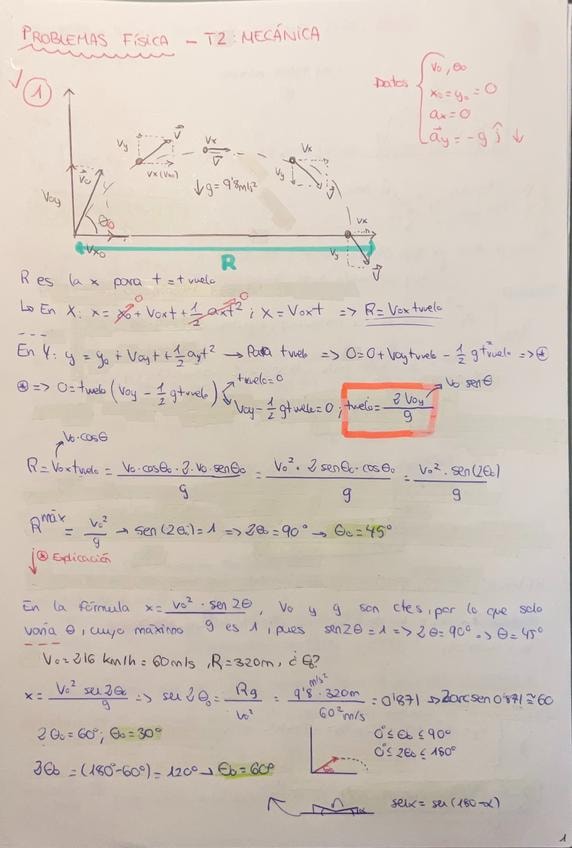 PROBLEMAS FÍSICA - T2: MECÁNICA
Datos
v₀, θ₀
x₀ = y₀ = 0
ax = 0
a⃗y = -g ĵ ↓
1
V₀y
V⃗₀
θ₀
Vx₀
Vy
V⃗
Vx (Vx₀)
Vx
V⃗
↓g = 9'8 m/s²
Vx
Vy
V⃗
Vx
Vy
V⃗
R
R es la x para t = t vuelo
↳ En X: x = x₀ + V₀xt + 1/2 axt² ; X = V₀xt => R = V₀x tvuelo
0 0
En Y: y = y₀ + V₀yt + 1/2 ayt² → Para tvuelo => 0 = 0 + V₀y tvuelo - 1/2 g t²vuelo => ⊛
⊛ => 0 = tvuelo (V₀y - 1/2 g tvuelo) tvuelo = 0
V₀y - 1/2 g tvuelo = 0 ; tvuelo = 2V₀y/g
V₀ senθ
V₀·cosθ
R = V₀x tvuelo = V₀·cosθ₀·2·V₀·senθ₀/g = V₀²·2senθ₀·cosθ₀/g = V₀²·sen(2θ₀)/g
Rmáx = V₀²/g → sen(2θ₀) = 1 => 2θ₀ = 90° → θ₀ = 45°
⊛ Explicación
En la fórmula x = V₀²·sen2θ/g, V₀ y g son ctes, por lo que solo
varía θ, cuyo máximo es 1, pues sen2θ = 1 => 2θ = 90° => θ = 45°
V₀ = 216 km/h = 60 m/s, R = 320m, ¿θ?
x = V₀² sen2θ₀/g => sen2θ₀ = Rg/V₀² = 9'8 m/s²·320m/60² m/s = 0'871 => 2arcsen0'871 ≅ 60
2θ₀ = 60°; θ₀ = 30°
0° ≤ θ₀ ≤ 90°
0° ≤ 2θ₀ ≤ 180°
2θ₀ = (180°-60°) = 120° → θ₀ = 60°
senα = sen(180-α)
1